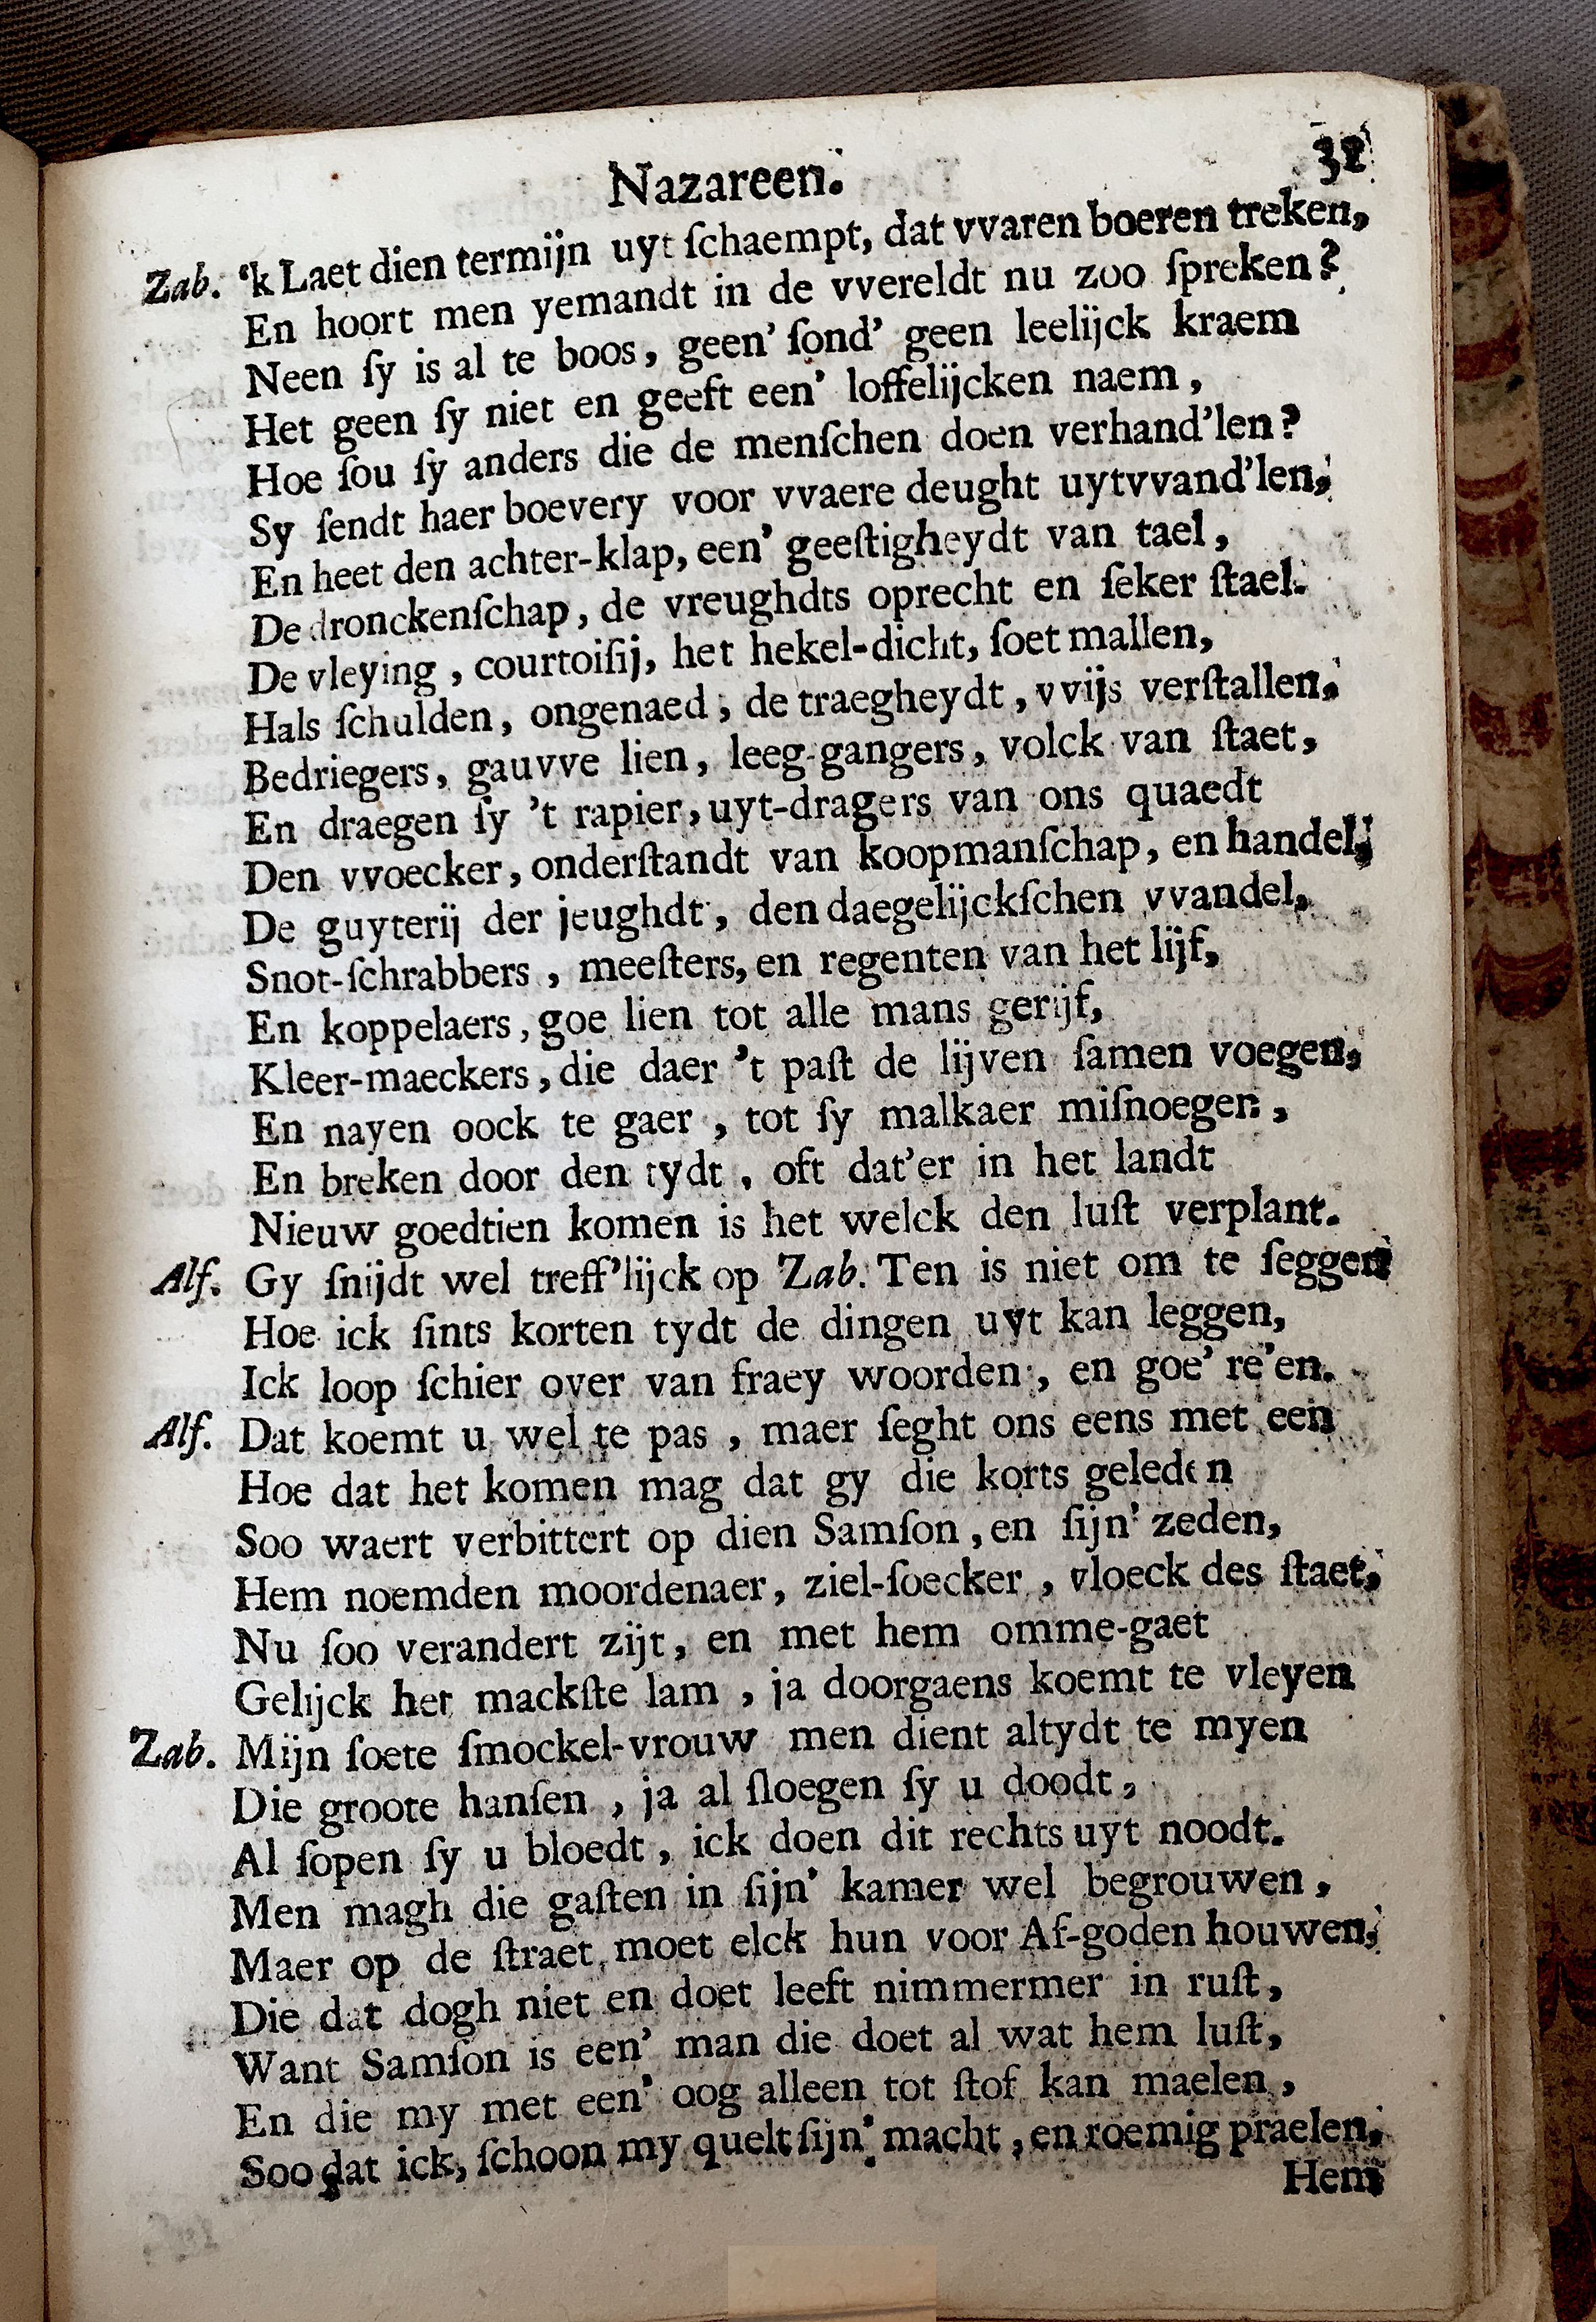 Nazareen. 31
Zab. 'k Laet dien termijn uyt ſchaempt, dat vvaren boeren treken,
En hoort men yemandt in de vvereldt nu zoo ſpreken?
Neen ſy is al te boos, geen' ſond' geen leelijck kraem
Het geen ſy niet en geeft een' loffelijcken naem,
Hoe ſou ſy anders die de menſchen doen verhand'len?
Sy ſendt haer boevery voor vvaere deught uytvvand'len,
En heet den achter-klap, een' geeſtigheydt van tael,
De dronckenſchap, de vreughdts oprecht en ſeker ſtael.
De vleying, courtoiſij, het hekel-dicht, ſoet mallen,
Hals ſchulden, ongenaed, de traegheydt, vvijs verſtallen,
Bedriegers, gauvve lien, leeg-gangers, volck van ſtaet,
En draegen ſy 't rapier, uyt-dragers van ons quaedt
Den vvoecker, onderſtandt van koopmanſchap, en handel,
De guyterij der jeughdt, den daegelijckſchen vvandel,
Snot-ſchrabbers, meeſters, en regenten van het lijf,
En koppelaers, goe lien tot alle mans gerijf,
Kleer-maeckers, die daer 't paſt de lijven ſamen voegen,
En nayen oock te gaer, tot ſy malkaer miſnoegen,
En breken door den tydt, oft dat'er in het landt
Nieuw goedtien komen is het welck den luſt verplant.
Alf. Gy ſnijdt wel treff'lijck op Zab. Ten is niet om te ſeggen
Hoe ick ſints korten tydt de dingen uyt kan leggen,
Ick loop ſchier over van fraey woorden, en goe' re'en.
Alf. Dat koemt u wel te pas, maer ſeght ons eens met een
Hoe dat het komen mag dat gy die korts geleden
Soo waert verbittert op dien Samſon, en ſijn' zeden,
Hem noemden moordenaer, ziel-ſoecker, vloeck des ſtaet,
Nu ſoo verandert zijt, en met hem omme-gaet
Gelijck het mackſte lam, ja doorgaens koemt te vleyen
Zab. Mijn ſoete ſmockel-vrouw men dient altydt te myen
Die groote hanſen, ja al ſloegen ſy u doodt,
Al ſopen ſy u bloedt, ick doen dit rechts uyt noodt.
Men magh die gaſten in ſijn' kamer wel begrouwen,
Maer op de ſtraet, moet elck hun voor Af-goden houwen,
Die dat dogh niet en doet leeft nimmermer in ruſt,
Want Samſon is een' man die doet al wat hem luſt,
En die my met een' oog alleen tot ſtof kan maelen,
Soo dat ick, ſchoon my quelt ſijn' macht, en roemig praelen,
Hem